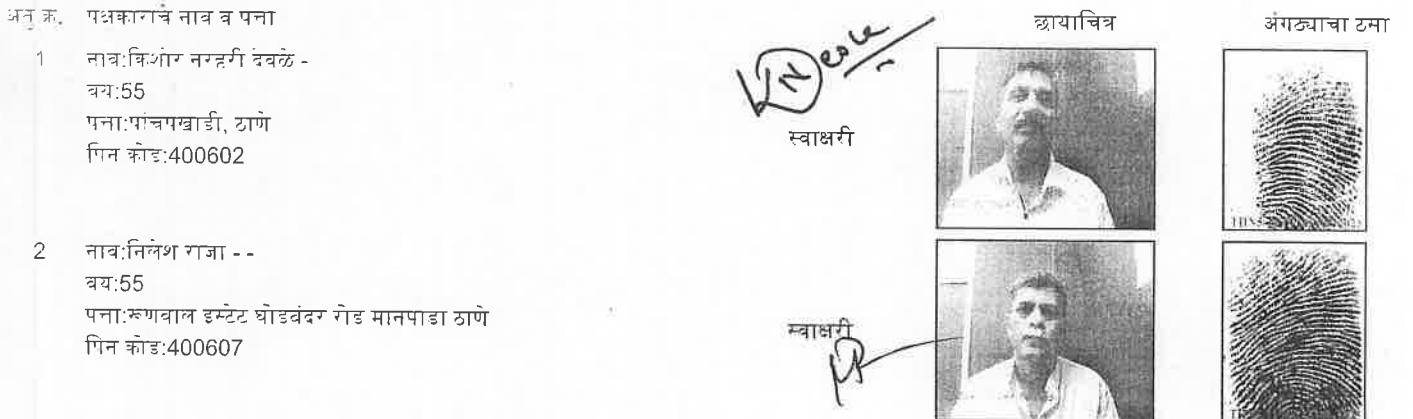 अनु क्र. पक्षकाराचे नाव व पत्ता छायाचित्र अंगठ्याचा ठसा
1 नाव:किशोर नरहरी देवळे -
वय:55
पत्ता:पांचपखाडी, ठाणे
पिन कोड:400602
स्वाक्षरी
2 नाव:निलेश राजा - -
वय:55
पत्ता:रूणवाल इस्टेट घोडबंदर रोड मानपाडा ठाणे
पिन कोड:400607
स्वाक्षरी